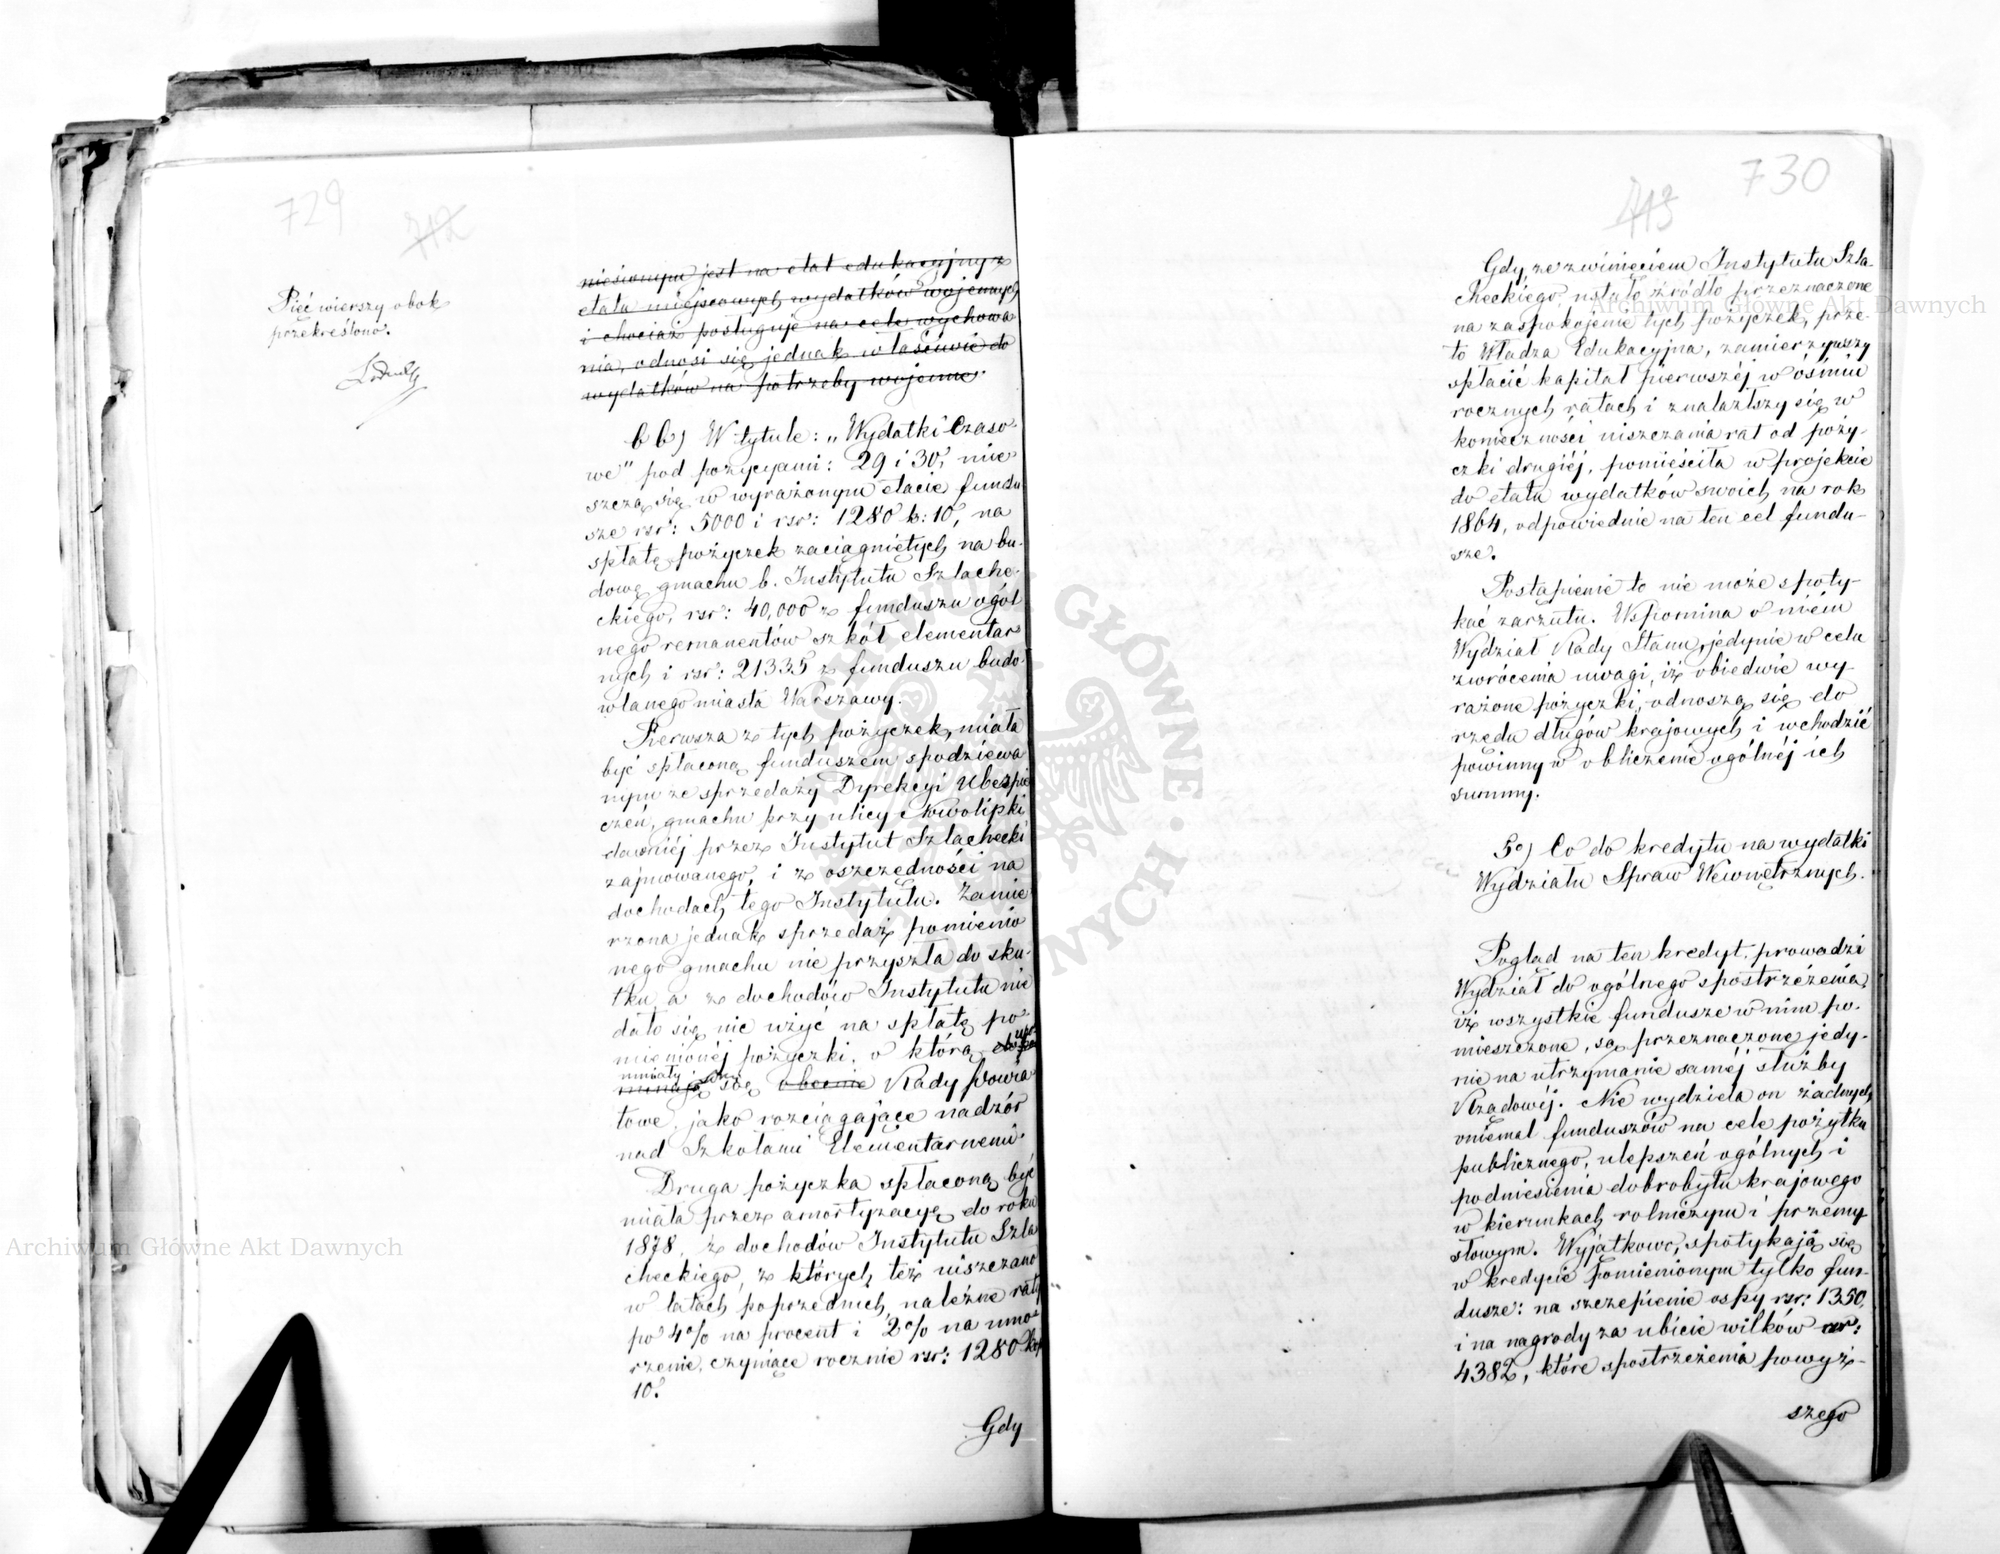 729
712
Pięć wierszy obok
przekreślono.
niesionym jest na etat edukacyjny z
etatu miejscowych wydatków wojennych
i chociaż posługuje na cele wychowa
nia, odnosi się jednak właściwie do
wydatków na potrzeby wojenne.
bb) W tytule: „Wydatki Czaso-
we" pod pozycyami: 29 i 30, mie
szczą się w wyrażonym etacie fundu
sze rsr: 5000 i rsr: 1280 k: 10, na
spłatę pożyczek zaciągniętych na bu-
dowę gmachu b. Instytutu Szlache-
ckiego, rsr: 40,000 z funduszu ogól
nego remanentów szkół elementar
nych i rsr: 21335 z funduszu budo-
wlanego miasta Warszawy.
Pierwsza z tych pożyczek, miała
być spłaconą funduszem spodziewa
nym ze sprzedaży Dyrekcyi Ubezpie
czeń, gmachu przy ulicy Nowolipki
dawniéj przez Instytut Szlachecki
zajmowanego, i z oszczędności na
dochodach tego Instytutu. Zamie
rzona jednak sprzedaż pomienio
nego gmachu nie przyszła do sku-
tku, a z dochodów Instytutu nie
dało się nic użyć na spłatę po-
mienionéj pożyczki, o którą upo
mniały się obecnie Rady Powia
towe, jako rozciągające nadzór
nad Szkołami Elementarnemi.
Druga pożyczka spłaconą być
miała przez amortyzacyę do roku
1878, z dochodów Instytutu Szla
checkiego, z których też uiszczano
w latach poprzednich należne raty
po 4% na procent i 2% na umo-
rzenie, czyniące rocznie rsr: 1280 kop
10.
Gdy
730
713
Gdy, ze zwinięciem Instytutu Szla-
checkiego, ustało źródło przeznaczone
na zaspokojenie tych pożyczek, prze-
to Władza Edukacyjna, zamierzywszy
spłacić kapitał pierwszéj w ośmiu
rocznych ratach i znalazłszy się w
konieczności uiszczania rat od poży-
czki drugiéj, pomieściła w projekcie
do etatu wydatków swoich na rok
1864, odpowiednie na ten cel fundu-
sze.
Postąpienie to nie może spoty-
kać zarzutu. Wspomina o niém
Wydział Rady Stanu, jedynie w celu
zwrócenia uwagi, iż obiedwie wy-
rażone pożyczki, odnoszą się do
rzędu długów krajowych i wchodzić
powinny w obliczenie ogólnéj ich
summy.
5o) Co do kredytu na wydatki
Wydziału Spraw Wewnętrznych.
Pogląd na ten kredyt prowadzi
Wydział do ogólnego spostrzeżenia,
iż wszystkie fundusze w nim po-
mieszczone, są przeznaczone jedy-
nie na utrzymanie saméj służby
Rządowéj. Nie wydziela on żadnych
oniemal funduszów na cele pożytku
publicznego, ulepszeń ogólnych i
podniesienia dobrobytu krajowego
w kierunkach rolniczym i przemy
słowym. Wyjątkowo, spotykają się
w kredycie pomienionym tylko fun-
dusze: na szczepienie ospy rsr: 1350,
i na nagrody za ubicie wilków rsr:
4382, które spostrzeżenia powyż-
szego
Archiwum Główne Akt Dawnych
Archiwum Główne Akt Dawnych